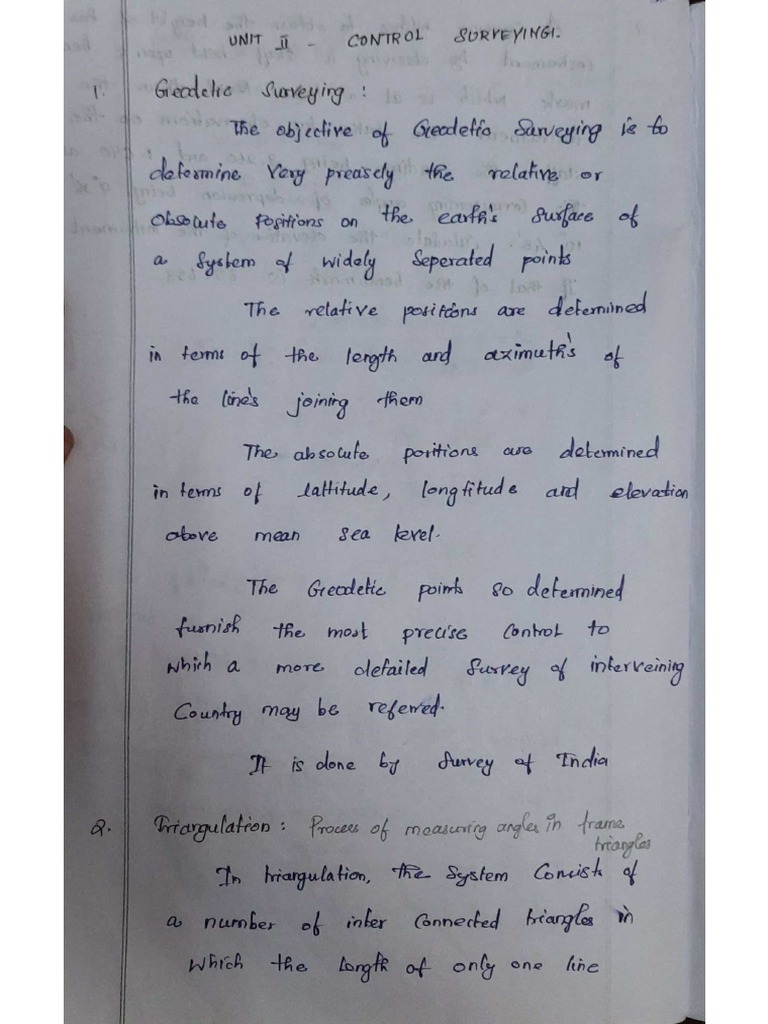 UNIT II - CONTROL SURVEYING.
1. Geodetic Surveying :
The objective of Geodetic Surveying is to
determine very precisely the relative or
absolute positions on the earth's surface of
a system of widely seperated points
The relative positions are determined
in terms of the length and azimuth's of
the line's joining them
The absolute positions are determined
in terms of lattitude, longtitude and elevation
above mean sea level.
The Geodetic points so determined
furnish the most precise control to
which a more detailed survey of interveining
Country may be referred.
It is done by Survey of India
2. Triangulation : Process of measuring angles in frame
triangles
In triangulation, the system Consists of
a number of inter Connected triangles in
which the length of only one line